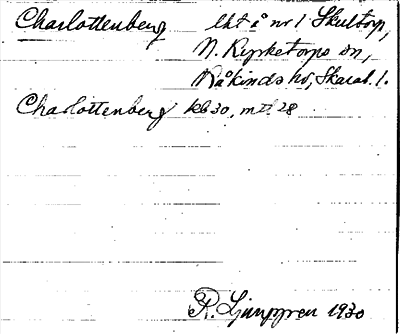 Charlottenberg lht å nr 1 Skultorp,
N. Kyrketorps sn,
Kåkinds hd, Skarab. l.
Charlottenberg kb 30, m tl. 28
R. Ljunggren 1930